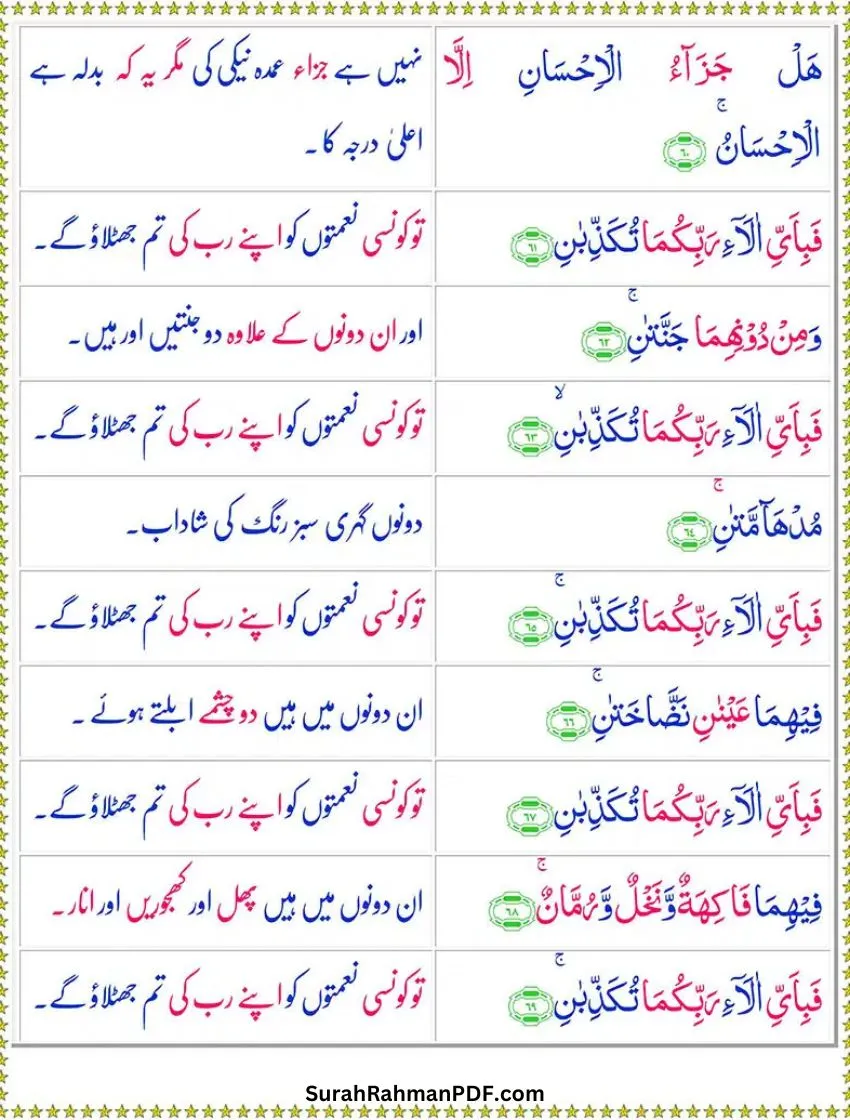 هَلْ جَزَآءُ الْاِحْسَانِ اِلَّا
الْاِحْسَانُ ۚ ٦٠
نہیں ہے جزاء عمدہ نیکی کی مگر یہ کہ بدلہ ہے
اعلیٰ درجہ کا۔
فَبِاَيِّ اٰلَآءِ رَبِّكُمَا تُكَذِّبٰنِ ٦١
تو کونسی نعمتوں کو اپنے رب کی تم جھٹلاؤ گے۔
وَمِنْ دُوْنِهِمَا جَنَّتٰنِ ۚ ٦٢
اور ان دونوں کے علاوہ دو جنتیں اور ہیں۔
فَبِاَيِّ اٰلَآءِ رَبِّكُمَا تُكَذِّبٰنِ ۙ ٦٣
تو کونسی نعمتوں کو اپنے رب کی تم جھٹلاؤ گے۔
مُدْهَآمَّتٰنِ ۚ ٦٤
دونوں گہری سبز رنگ کی شاداب۔
فَبِاَيِّ اٰلَآءِ رَبِّكُمَا تُكَذِّبٰنِ ۚ ٦٥
تو کونسی نعمتوں کو اپنے رب کی تم جھٹلاؤ گے۔
فِيْهِمَا عَيْنٰنِ نَضَّاخَتٰنِ ۚ ٦٦
ان دونوں میں ہیں دو چشمے ابلتے ہوئے ۔
فَبِاَيِّ اٰلَآءِ رَبِّكُمَا تُكَذِّبٰنِ ٦٧
تو کونسی نعمتوں کو اپنے رب کی تم جھٹلاؤ گے۔
فِيْهِمَا فَاكِهَةٌ وَّنَخْلٌ وَّرُمَّانٌ ۚ ٦٨
ان دونوں میں ہیں پھل اور کھجوریں اور انار ۔
فَبِاَيِّ اٰلَآءِ رَبِّكُمَا تُكَذِّبٰنِ ۚ ٦٩
تو کونسی نعمتوں کو اپنے رب کی تم جھٹلاؤ گے۔
SurahRahmanPDF.com